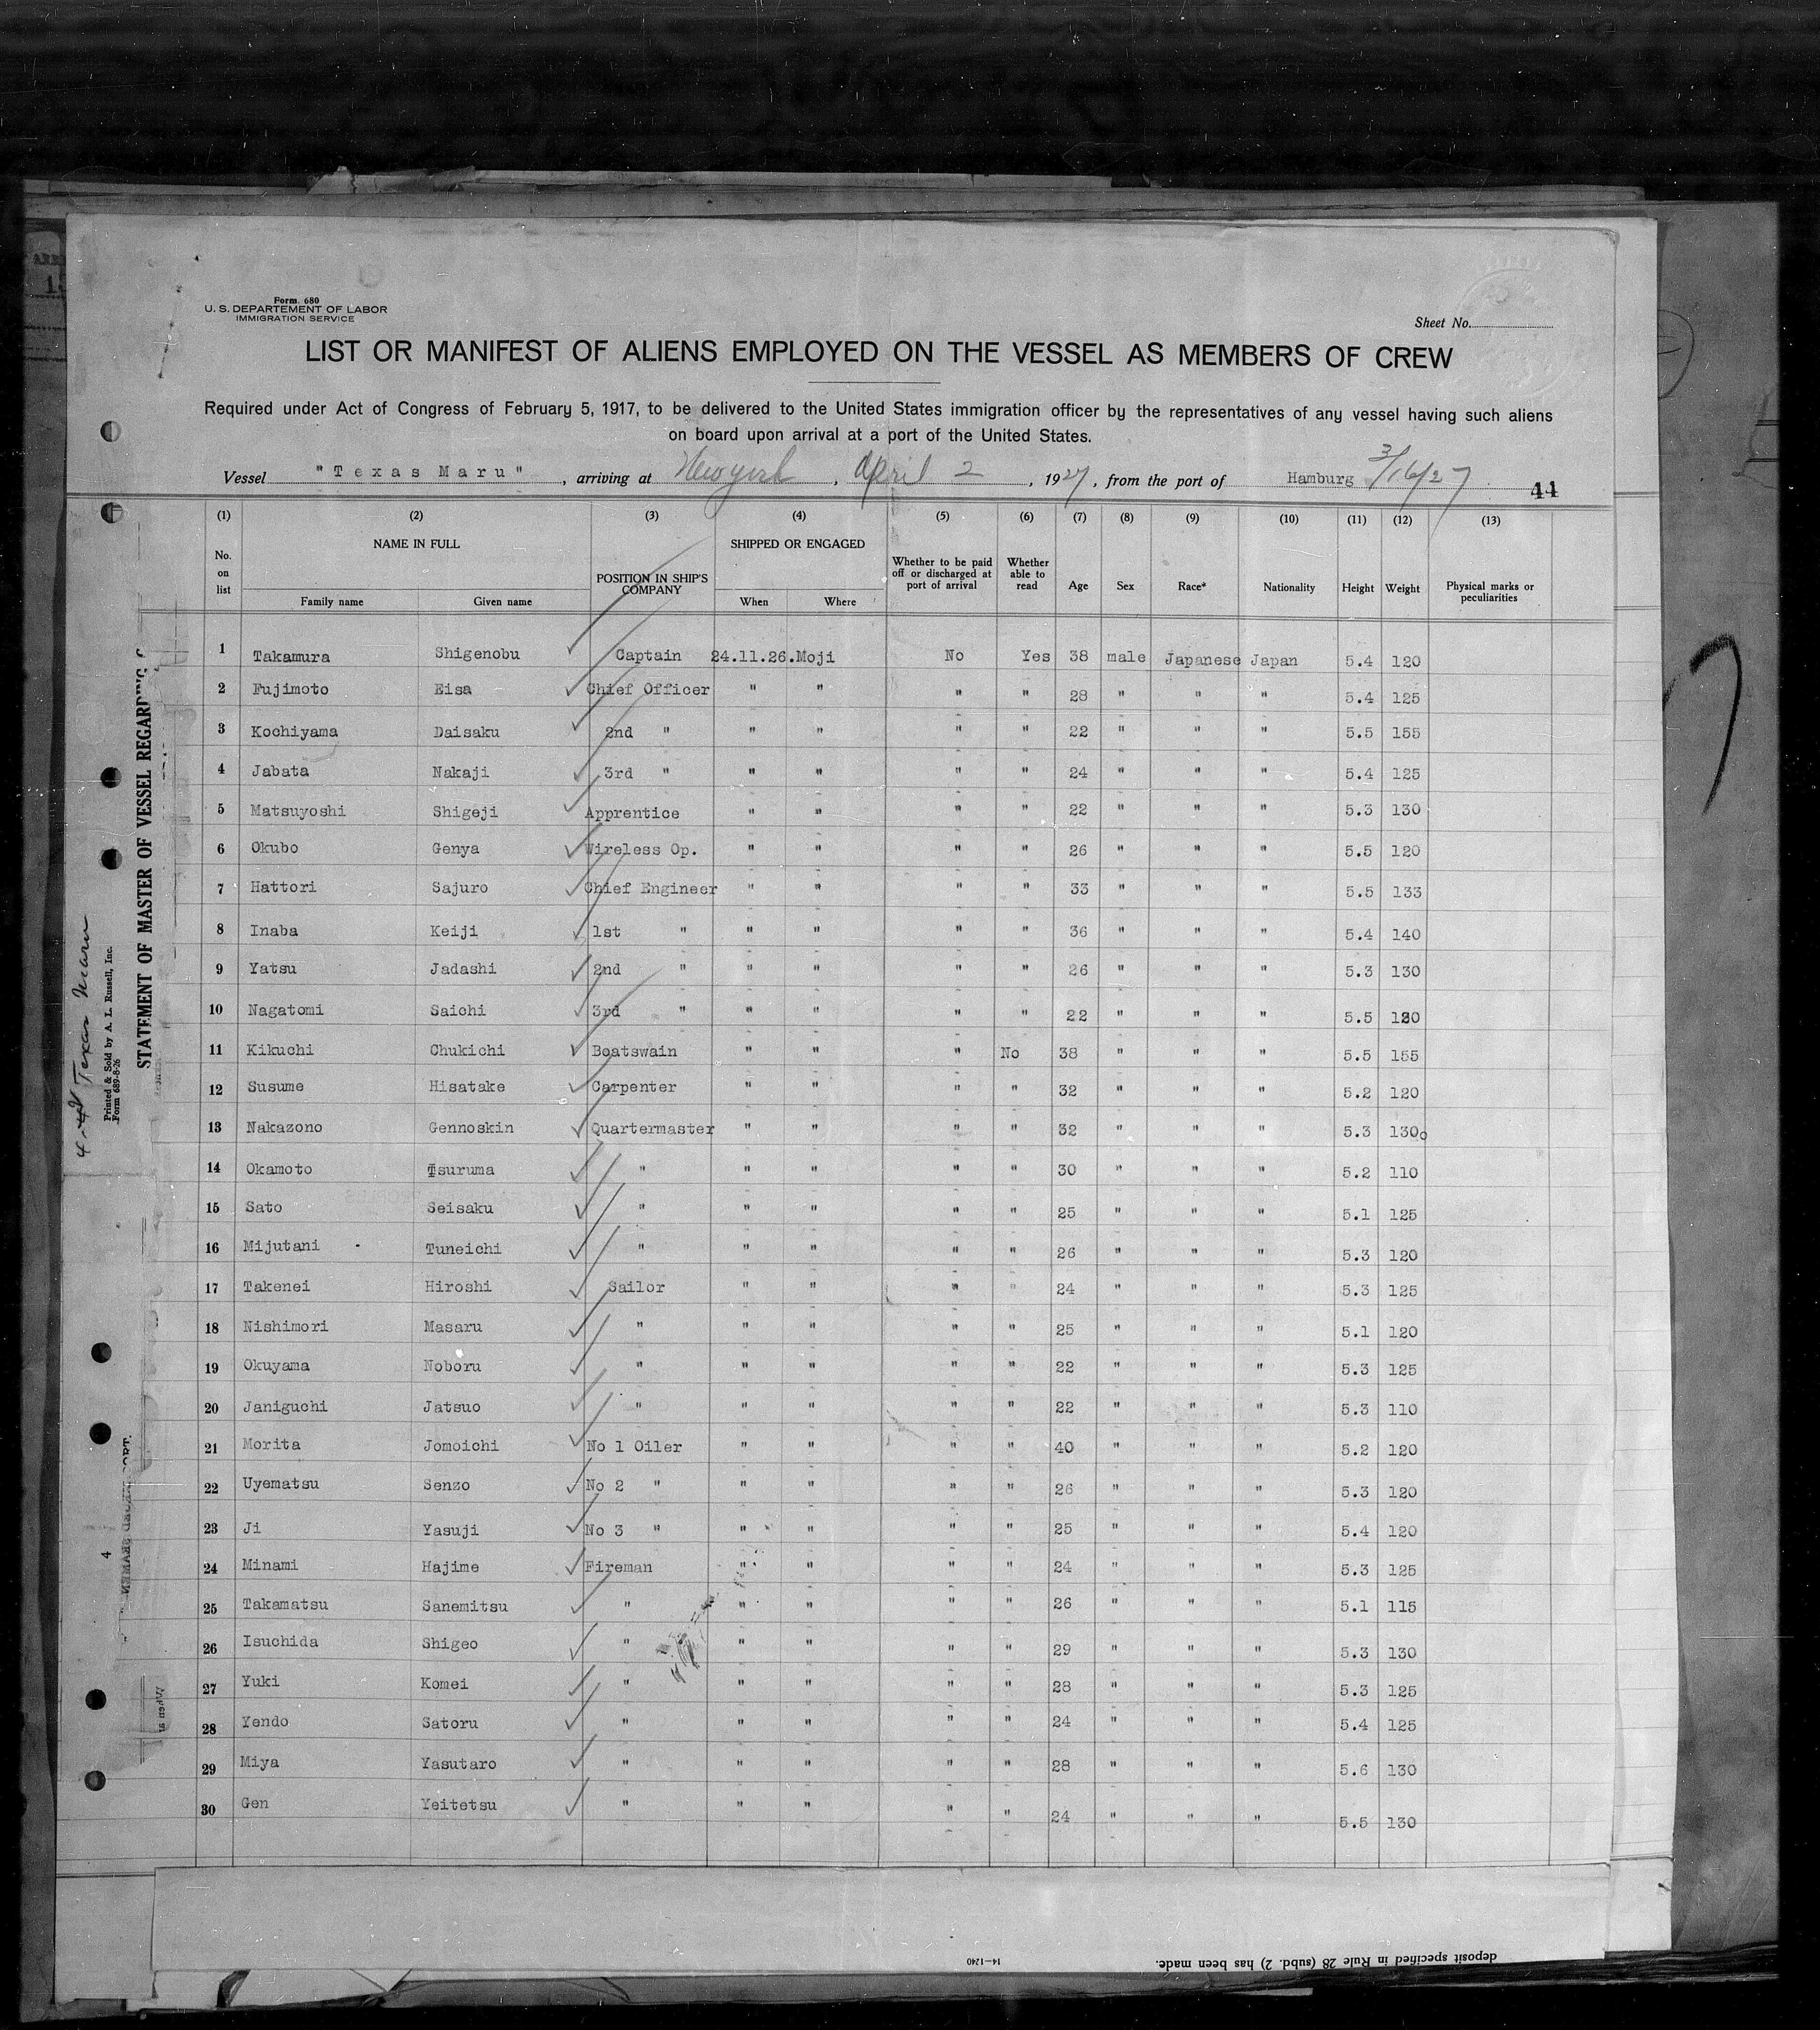 Form. 680
U. S. DEPARTEMENT OF LABOR
IMMIGRATION SERVICE
Sheet No.
LIST OR MANIFEST OF ALIENS EMPLOYED ON THE VESSEL AS MEMBERS OF CREW
Required under Act of Congress of February 5, 1917, to be delivered to the United States immigration officer by the representatives of any vessel having such aliens
on board upon arrival at a port of the United States.
Vessel "Texas Maru", arriving at New York, April 2, 1927, from the port of Hamburg 3/16/27 44
(1) (2) (3) (4) (5) (6) (7) (8) (9) (10) (11) (12) (13)
No. on list NAME IN FULL Family name Given name POSITION IN SHIP'S COMPANY SHIPPED OR ENGAGED When Where Whether to be paid off or discharged at port of arrival Whether able to read Age Sex Race* Nationality Height Weight Physical marks or peculiarities
1 Takamura Shigenobu Captain 24.11.26. Moji No Yes 38 male Japanese Japan 5.4 120
2 Fujimoto Eisa Chief Officer " " " " 28 " " " 5.4 125
3 Kochiyama Daisaku 2nd " " " " " 22 " " " 5.5 155
4 Jabata Nakaji 3rd " " " " " 24 " " " 5.4 125
5 Matsuyoshi Shigeji Apprentice " " " " 22 " " " 5.3 130
6 Okubo Genya Wireless Op. " " " " 26 " " " 5.5 120
7 Hattori Sajuro Chief Engineer " " " " 33 " " " 5.5 133
8 Inaba Keiji 1st " " " " " 36 " " " 5.4 140
9 Yatsu Jadashi 2nd " " " " " 26 " " " 5.3 130
10 Nagatomi Saichi 3rd " " " " " 22 " " " 5.5
11 Kikuchi Chukichi Boatswain " " " No 38 " " " 5.5 155
12 Susume Hisatake Carpenter " " " " 32 " " " 5.2 120
13 Nakazono Gennoskin Quartermaster " " " " 32 " " " 5.3 130
14 Okamoto Tsuruma " " " " " 30 " " " 5.2 110
15 Sato Seisaku " " " " " 25 " " " 5.1 125
16 Mijutani - Tuneichi " " " " " 26 " " " 5.3 120
17 Takenei Hiroshi Sailor " " " " 24 " " " 5.3 125
18 Nishimori Masaru " " " " " 25 " " " 5.1 120
19 Okuyama Noboru " " " " " 22 " " " 5.3 125
20 Janiguchi Jatsuo " " " " " 22 " " " 5.3 110
21 Morita Jomoichi No 1 Oiler " " " " 40 " " " 5.2 120
22 Uyematsu Senzo No 2 " " " " " 26 " " " 5.3 120
23 Ji Yasuji No 3 " " " " " 25 " " " 5.4 120
24 Minami Hajime Fireman " " " " 24 " " " 5.3 125
25 Takamatsu Sanemitsu " " " " " 26 " " " 5.1 115
26 Isuchida Shigeo " " " " " 29 " " " 5.3 130
27 Yuki Komei " " " " " 28 " " " 5.3 125
28 Yendo Satoru " " " " " 24 " " " 5.4 125
29 Miya Yasutaro " " " " " 28 " " " 5.6 130
30 Gen Yeitetsu " " " " " 24 " " " 5.5 130
deposit specified in Rule 28 (subd. 2) has been made.
14—1240
STATEMENT OF MASTER OF VESSEL REGARDING
Printed & Sold by A. L. Russell, Inc.
Form 689-8-26
Texas Maru
4